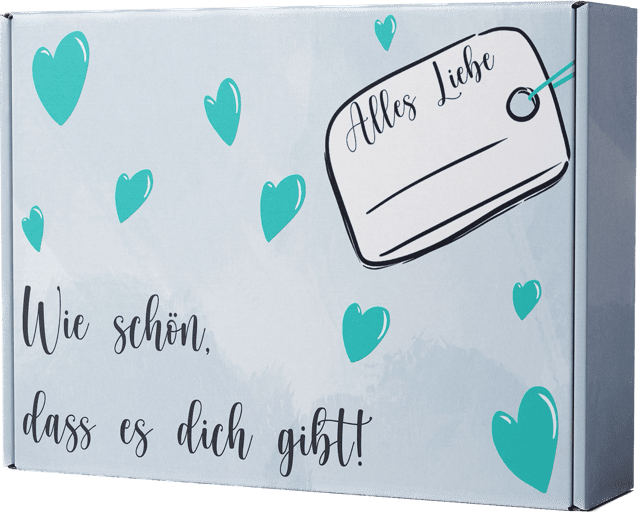 Alles Liebe
Wie schön,
dass es dich gibt!